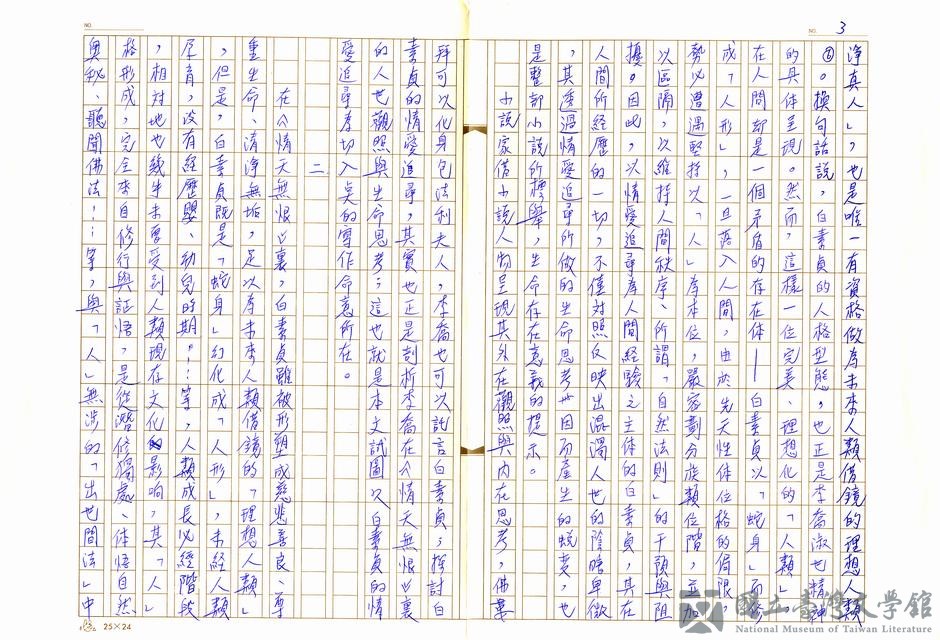 NO. 3
淨真人」,也是唯一有資格做為未來人類借鏡的理想人類
⑥。換句話說,白素貞的人格型態,也正是李喬淑世精神
的具体呈現。然而,這樣一位完美、理想化的「人類」,
在人間却是一個矛盾的存在体——白素貞以「蛇身」而修
成「人形」,一旦落入人間,由於先天性体位格的侷限,
勢必遭遇堅持以「人」為本位,嚴密劃分族類位階,並加
以區隔,以維持人間秩序、所謂「自然法則」的干預與阻
擾。因此,以情愛追尋為人間經驗之主体的白素貞,其在
人間所經歷的一切,不僅對照反映出混濁人世的陰暗卑微
,其透過情愛追尋所做的生命思考世因而產生的蛻變,也
是整部小說所標舉,生命存在意義的提示。
小說家借小說人物呈現其外在觀照與內在思考,佛婁
NO.
拜可以化身包法利夫人,李喬也可以託言白素貞;探討白
素貞的情愛追尋,其實也正是剖析李喬在《情天無恨》裏
的人世觀照與生命思考;這也就是本文試圖以白素貞的情
愛追尋為切入奌的寫作命意所在。
二
在《情天無恨》裏,白素貞雖被形塑成慈悲善良、尊
重生命、清淨無垢,足以為未來人類借鏡的「理想人類」
,但是,白素貞既是「蛇身」幻化成「人形」,未經人類
尸育,沒有經歷嬰、幼兒時期……等,人類成長必經階段
,相对地也幾乎未曾受到人類現存文化影响,其「人」
格形成,完全來自修行與証悟,是從潛修獨處、体悟自然
奥秘、聽聞佛法……等,與「人」無涉的「出世間法」中
25×24
國立臺灣文學館
National Museum of Taiwan Literature